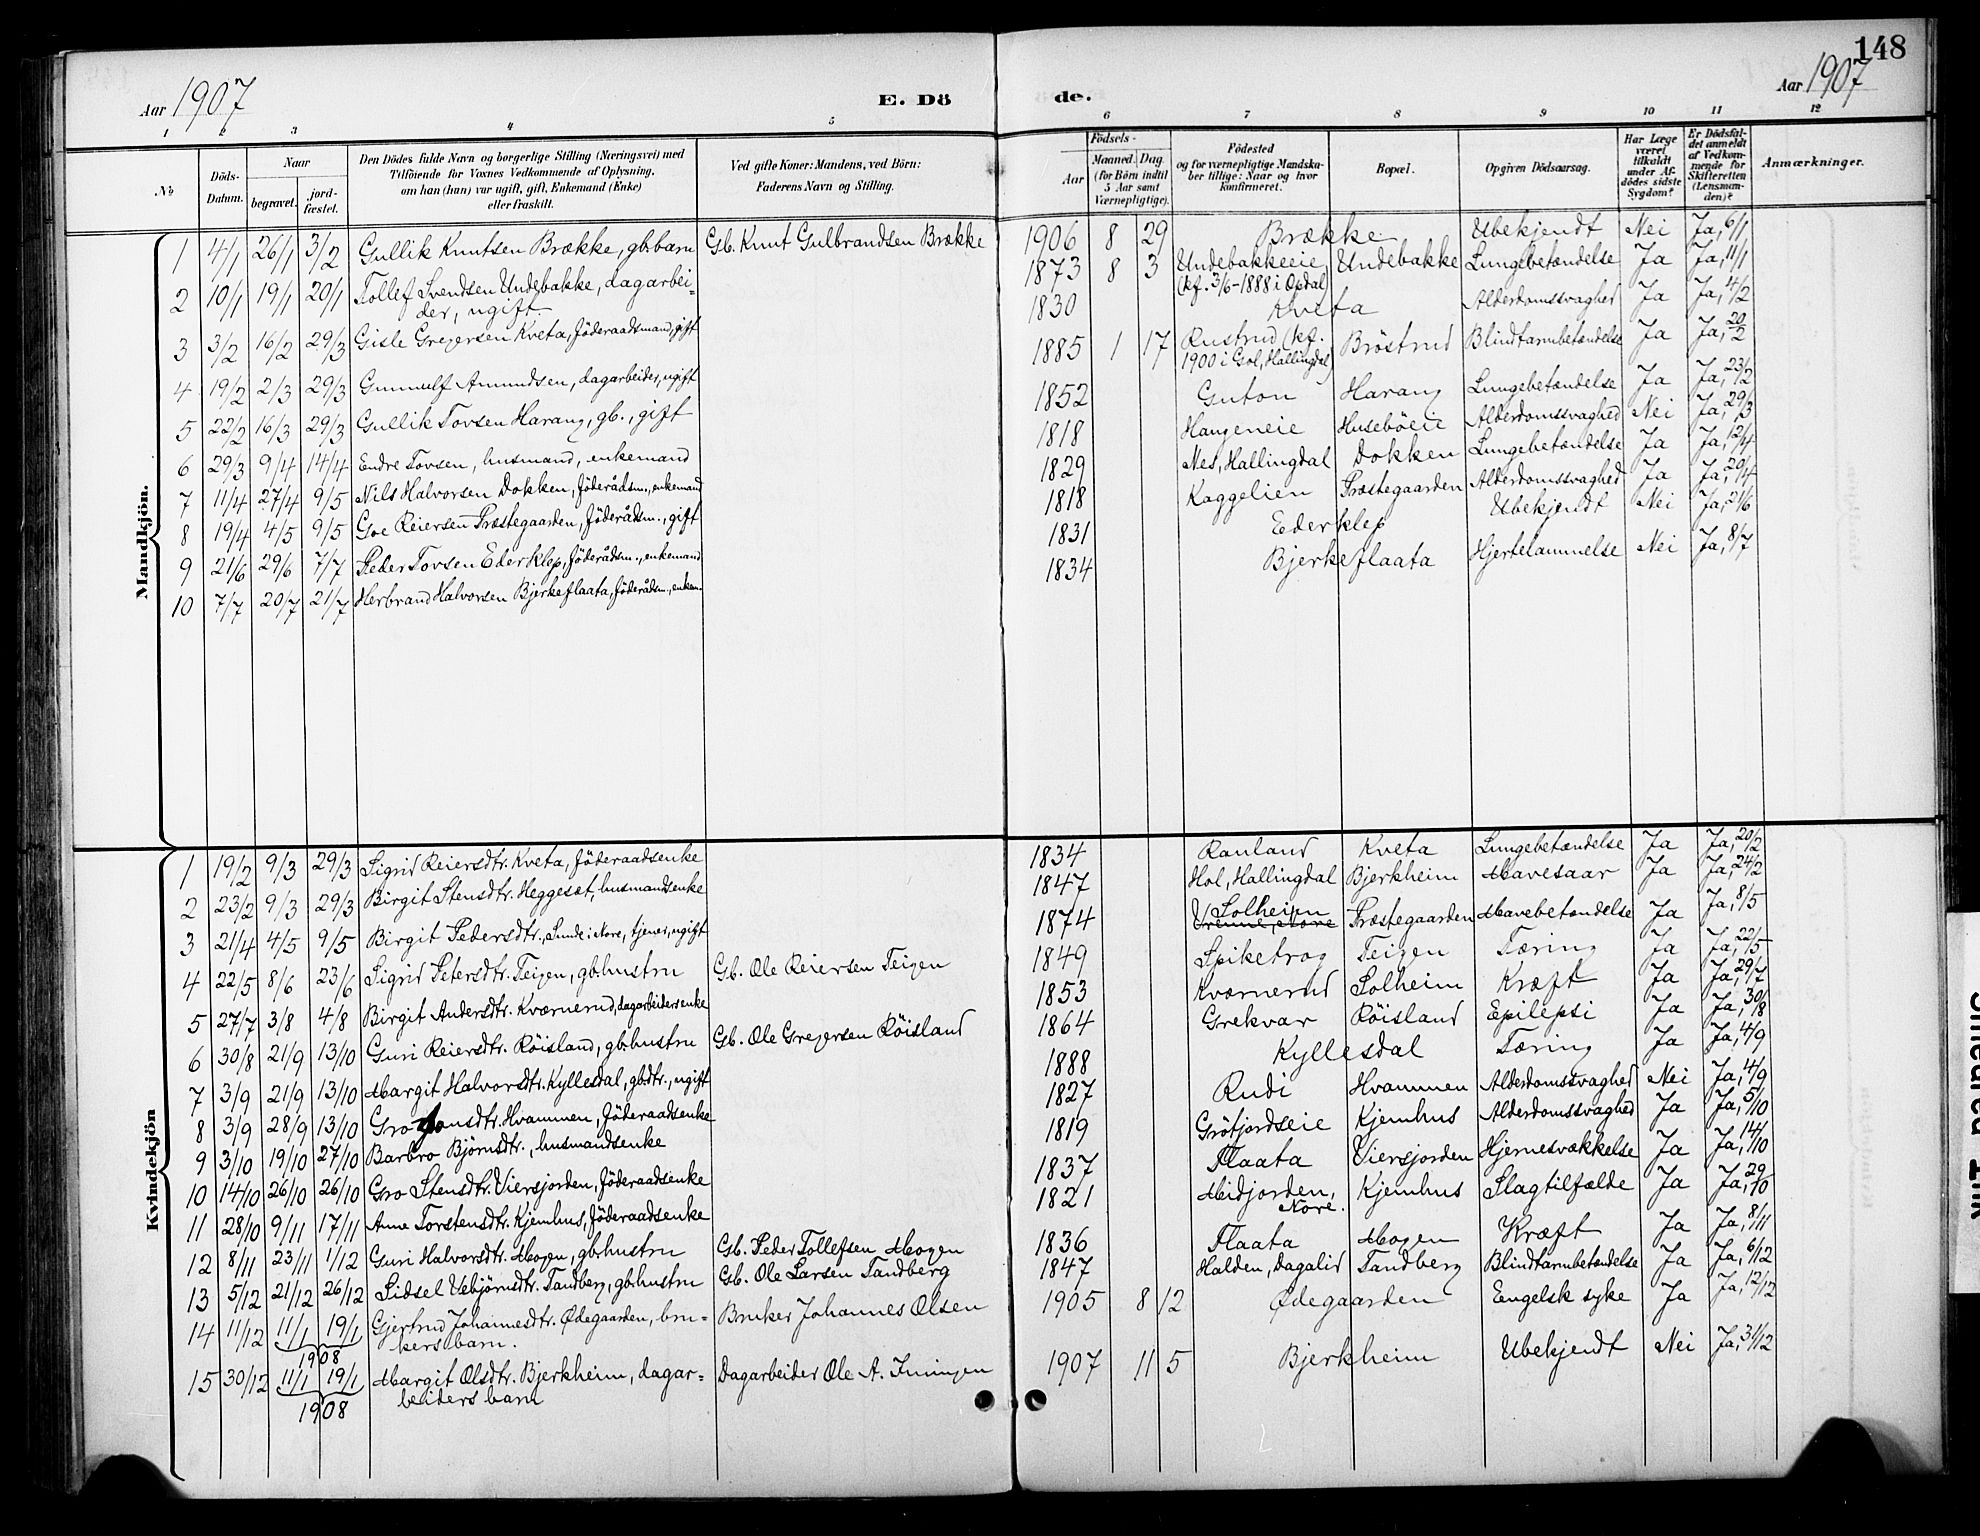 148
Aar 1907
E. Dö
de.
Aar 1907
1 2 3 4 5 6 7 8 9 10 11 12
No
Döds-Datum.
Naar
begravet.
jord-fæstet.
Den Dödes fulde Navn og borgerlige Stilling (Næringsvei) med
Tilföiende for Voxnes Vedkommende af Oplysning,
om han (hun) var ugift, gift, Enkemand (Enke)
eller fraskilt.
Ved gifte Koner: Mandens, ved Börn:
Faderens Navn og Stilling.
Födsels-
Aar
Maaned. Dag.
(for Börn indtil
5 Aar samt
Værnepligtige).
Födested
og for værnepligtige Mandska-
ber tillige: Naar og hvor
konfirmeret.
Bopæl.
Opgiven Dödsaarsag.
Har Læge
været
tilkaldt
under Af-
dödes sidste
Sygdom?
Er Dödsfal-
det anmeldt
af Vedkom-
mende for
Skifteretten
(Lensman-
den)?
Anmærkninger.
Mandkjön.
1 4/1 26/1 3/2 Gullik Knutsen Brække, gb.barn Gb. Knut Gulbrandsen Brække 1906 8 29 Brække Ubekjendt Nei Ja, 6/1
2 10/1 19/1 20/1 Tollef Svendsen Undebakke, dagarbei- 1873 8 3 Undebakkeeie Undebakke Lungebetændelse Ja Ja, 11/1
der, ugift (kf. 3/6-1888 i Opdal)
3 3/2 16/2 29/3 Gisle Gregersen Kveta, föderaadsmand, gift 1830 Kveta Alderdomssvaghed Ja Ja, 4/2
4 19/2 2/3 29/3 Gunnulf Amundsen, dagarbeider, ugift 1885 1 17 Rustrud (kf. Bröstrud Blindtarmbetændelse Ja Ja, 20/2
1900 i Gol, Hallingdal)
5 22/2 16/3 29/3 Gullik Tovsen Harang, gb., gift 1852 Guton Harang Lungebetændelse Ja Ja, 23/2
6 29/3 9/4 14/4 Endre Tovsen, husmand, enkemand 1818 Haugeneie Husebøeie Alderdomssvaghed Nei Ja, 29/3
7 11/4 27/4 9/5 Nils Halvorsen Dokken, föderådsm., enkemand 1829 Nes, Hallingdal Dokken Lungebetændelse Ja Ja, 12/4
8 19/4 4/5 9/5 Goe Reiersen Præstegaarden, föderådsm., gift 1818 Kaggelien Præstegaarden Alderdomssvaghed Ja Ja, 20/4
9 21/6 29/6 7/7 Peder Tovsen Ederklep, föderådsm., enkemand 1831 Ederklep Ubekjendt Nei Ja, 21/6
10 7/7 20/7 21/7 Herbrand Halvorsen Bjerkeflaata, föderådsm., enkem. 1834 Bjerkeflaata Hjertelammelse Nei Ja, 8/7
Kvindekjön
1 19/2 9/3 29/3 Sigrid Reiersdtr. Kveta, föderaadsenke 1834 Rauland Kveta Lungebetændelse Ja Ja, 20/2
2 23/2 9/3 29/3 Birgit Stensdtr. Heggeset, husmandsenke 1847 Hol, Hallingdal Bjerkheim Mavesaar Ja Ja, 24/2
3 21/4 4/5 9/5 Birgit Pedersdtr., Sunde i Nore, tjener, ugift 1874 Solheim Præstegaarden Mavebetændelse Ja Ja, 8/5
4 22/5 8/6 23/6 Sigrid Petersdtr. Teigen, gb.hustru Gb. Ole Reiersen Teigen 1849 Spiketrog Teigen Tæring Ja Ja, 22/5
5 27/7 3/8 4/8 Birgit Andersdtr. Kværnerud, dagarbeidersenke 1853 Kværnerud Solheim Kræft Ja Ja, 29/7
6 30/8 21/9 13/10 Guri Reiersdtr. Röisland, gb.hustru Gb. Ole Gregersen Röisland 1864 Grekvar Röisland Epilepsi Ja Ja, 30/8
7 3/9 21/9 13/10 Margit Halvorsdtr. Kyllesdal, gb.dtr., ugift 1888 Kyllesdal Tæring Ja Ja, 4/9
8 3/9 28/9 13/10 Gro Jonsdtr. Hvammen, föderaadsenke 1827 Rudi Hvammen Alderdomssvaghed Nei Ja, 4/9
9 3/10 19/10 27/10 Barbro Björnsdtr., husmandsenke 1819 Gröfjordseie Kjemhus Alderdomssvaghed Ja Ja, 5/10
10 14/10 26/10 26/10 Gro Stensdtr. Viersjorden, föderaadsenke 1837 Flaata Viersjorden Hjernesvækkelse Ja Ja, 14/10
11 28/10 9/11 17/11 Anne Torstensdtr. Kjemhus, föderaadsenke 1821 Midjorden, Kjemhus Slagtilfælde Ja Ja, 29/10
Nore.
12 8/11 23/11 1/12 Guri Halvorsdtr. Mogen, gb.hustru Gb. Peder Tollefsen Mogen 1836 Flaata Mogen Kræft Ja Ja, 8/11
13 5/12 21/12 26/12 Sidsel Uebjörnsdtr. Tandberg, gb.hustru Gb. Ole Larsen Tandberg 1847 Halden, Dagalid Tandberg Blindtarmbetændelse Ja Ja, 6/12
14 11/12 11/1 19/1 Gjertrud Johannesdtr. Ødegaarden, bru- Bruker Johannes Olsen 1905 8 12 Ødegaarden Engelsk syke Ja Ja, 12/12
1908 kers barn.
15 30/12 11/1 19/1 Margit Olsdtr. Bjerkheim, dagar- Dagarbeider Ole A. 1907 11 5 Bjerkheim Ubekjendt Nei Ja, 31/12
1908 beiders barn